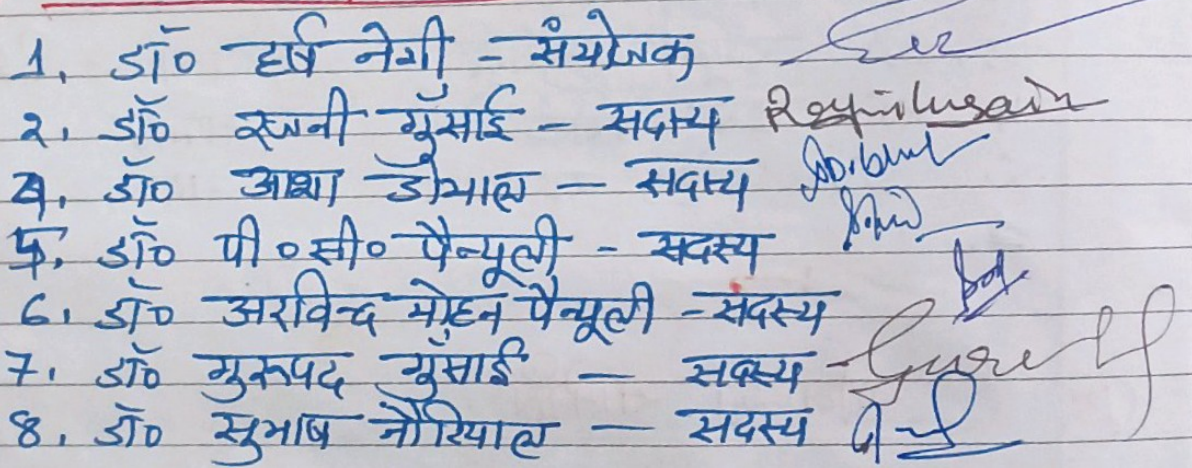 1. डॉ० हर्ष नेगी - संयोजक
2. डॉ० रजनी गुँसाई - सदस्य Rajni Gusain
4. डॉ० आशा डोभाल - सदस्य
5. डॉ० पी०सी० पैन्यूली - सदस्य
6. डॉ० अरविन्द मोहन पैन्यूली - सदस्य
7. डॉ० गुरूपद गुँसाई - सदस्य
8. डॉ० सुभाष नौरियाल - सदस्य